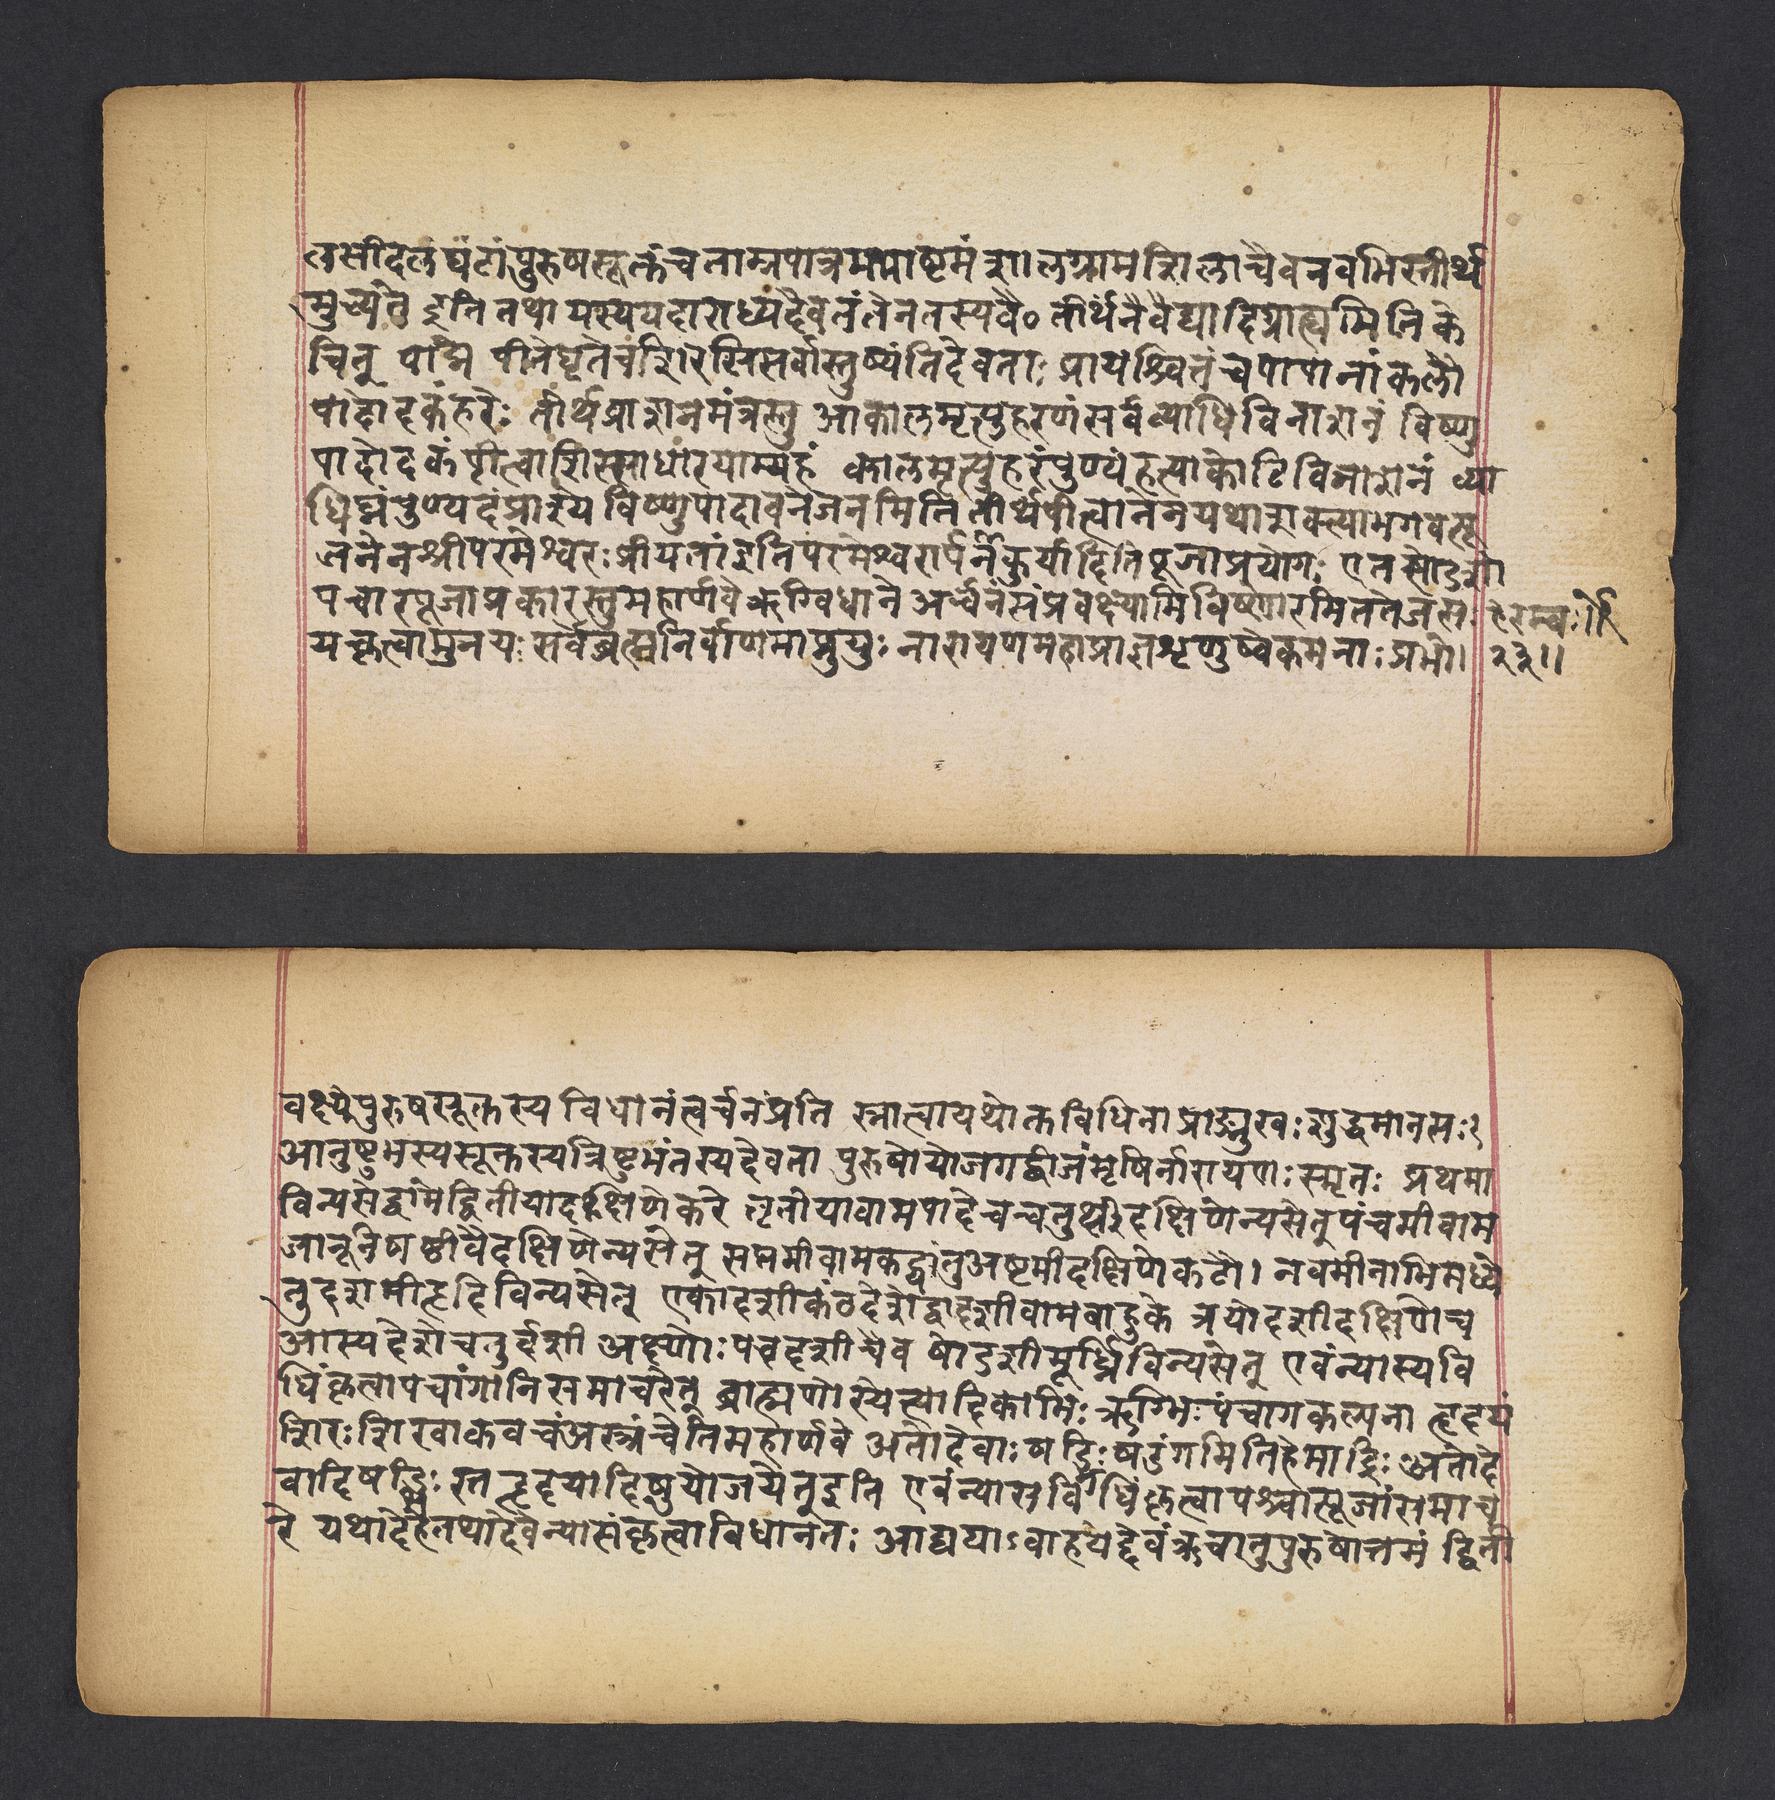 लसीदलं घंटां पुरुषसूक्तं च ताम्रपात्रमथाष्टमं शालग्रामशिला चैव नवभिस्तीर्थ
मुच्यते इति तथा यस्य यदाराध्यदैवतं तेन तस्यैव० तीर्थनैवेद्यादिग्राह्यमिति के
चित् पाद्मे पीते घृते च शिरसि सर्वास्तुष्यंति देवताः प्रायश्चित्तं च पापानां कलौ
पादोदकं हरेः तीर्थप्राशनमंत्रस्तु आकालमृत्युहरणं सर्वव्याधिविनाशनं विष्णु
पादोदकं पीत्वा शिरसा धारयाम्यहं कालमृत्युहरं पुण्यं हत्याकोटिविनाशनं व्या
धिघ्नं पुण्यदं प्राश्य विष्णुपादावनेजनमिति तीर्थं पीत्वानेन यथाशक्त्या भगवत्पू
जनेन श्रीपरमेश्वरः प्रीयतां इति परमेश्वरार्पनं कुर्यादिति पूजाप्रयोगः एतत्सोडशो
पचारपूजाप्रकारस्तु महार्णवे ऋग्विधाने अर्च्चनं संप्रवक्ष्यामि विष्णोरमिततेजसः हेरम्बः॥
यत्कृत्वा मुनयः सर्वे ब्रह्मनिर्वाणमाप्नुयुः नारायण महाप्राज्ञ शृणुष्वैकमनाः प्रभो। २२॥
वक्ष्ये पुरुषसूक्तस्य विधानं त्वर्चनं प्रति स्नात्वा यथोक्तविधिना प्राङ्मुखः शुद्धमानसः १
आनुष्टुभस्य सूक्तस्य त्रिष्टुभंतस्य देवता पुरुषो यो जगद्बीजंमृषिर्नारायणः स्मृतः प्रथमा
विन्यसेद्वामे द्वितीया दक्षिणे करे तृतीया वामपादे च चतुर्थी दक्षिणे न्यसेत् पंचमी वाम
जानूनि षष्ठी वै दक्षिणे न्यसेत् सप्तमी वामकट्यां तु अष्टमी दक्षिणे कटौ। नवमी नाभिमध्ये
तु दशमी हृदि विन्यसेत् एकादशी कंठदेशे द्वादशी वामबाहुके त्रयोदशी दक्षिणे च
आस्यदेशे चतुर्दशी अक्ष्णोः पंचदशी चैव षोडशी मूर्ध्नि विन्यसेत् एवं न्यास्यवि
धिं कृत्वा पंचांगानि समाचरेत् ब्राह्मणोस्येत्यादिकाभिः ऋग्भिः पंचागकल्पना हृदयं
शिरः शिखा कवचं अस्त्रं चेति महार्णवे अतो देवाः षड्भिः षडंगमिति हेमाद्रिः अतो दे
वादि षड्भिः स्त हृदयादिषु योजयेत् इति एवं न्यासविधिं कृत्वा पश्चात्पूजां समाच
रे यथा देहे तथा देवे न्यासं कृत्वा विधानतः आद्ययाऽवाहयेद्देवं ऋचा तु पुरुषोत्तमं द्विती